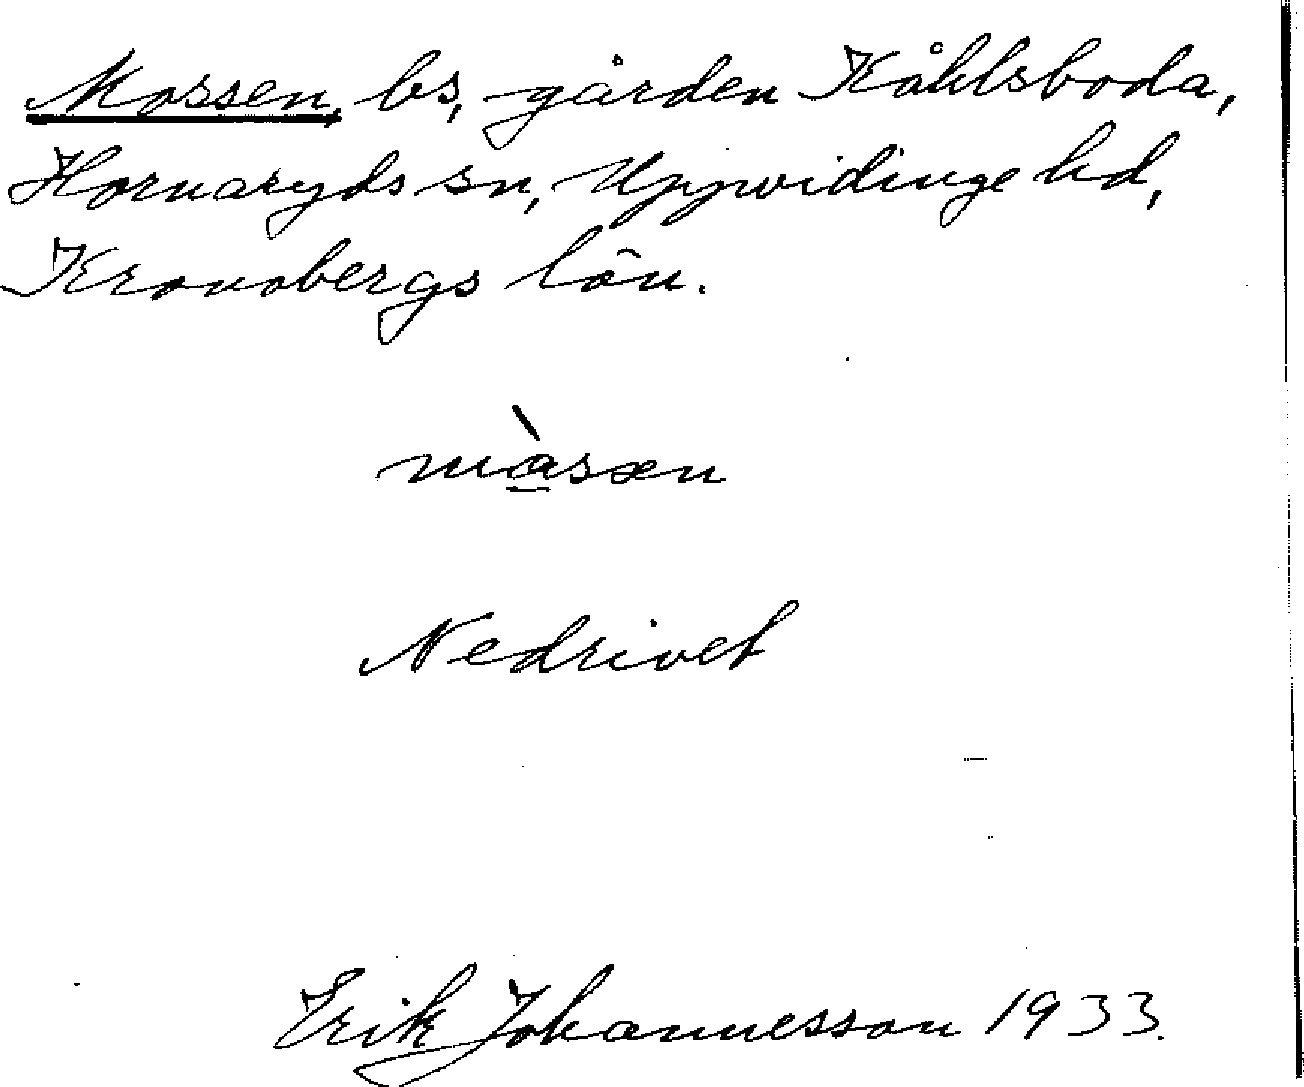 Mossen, bs, gården Kåhlsboda,
Hornaryds sn, Uppvidinge hd,
Kronobergs län.
màsæn
Nedrivet
Erik Johannesson 1933.